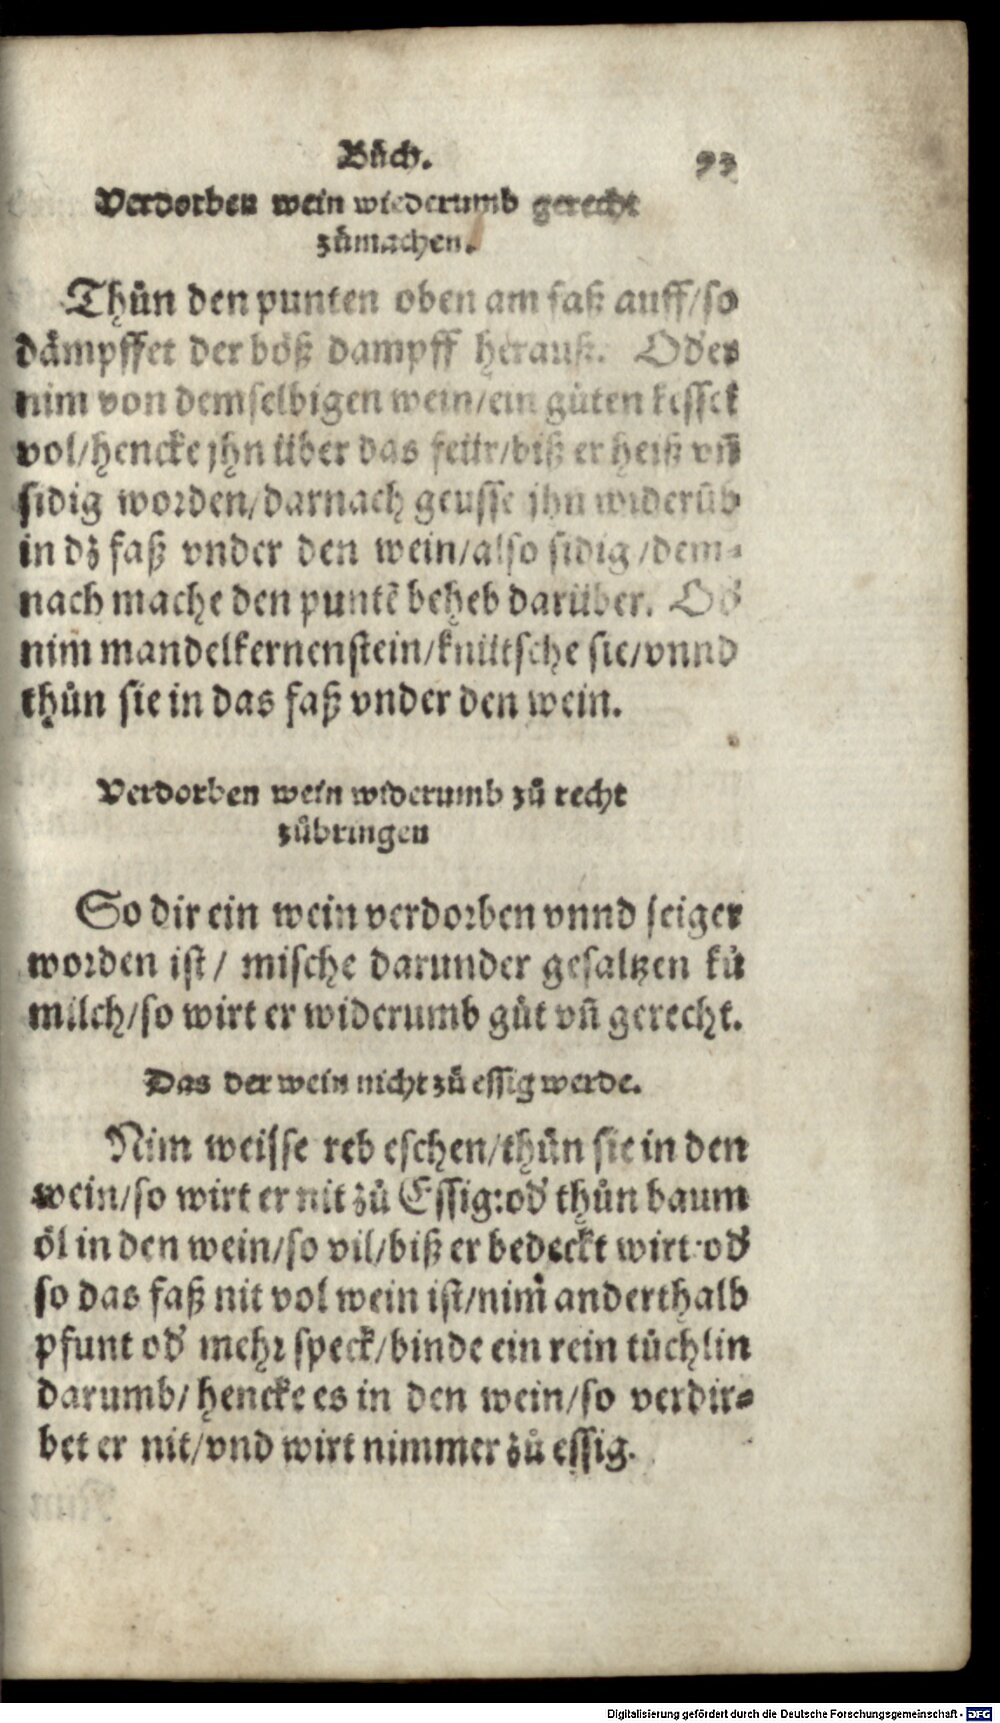 Bůch. 93
Verdorben wein wiederumb gerecht
zůmachen.
Thůn den punten oben am faß auff/so
dämpffet der böß dampff herauß. Oder
nim von demselbigen wein/ein gůten kessel
vol/hencke jhn über das feür/biß er heiß vñ
sidig worden/darnach geusse jhn widerüb
in dz faß vnder den wein/also sidig/dem-
nach mache den puntẽ beheb darüber. Od'
nim̃ mandelkernenstein/knütsche sie/vnnd
thůn sie in das faß vnder den wein.
Verdorben wein widerumb zů recht
zůbringen
So dir ein wein verdorben vnnd seiger
worden ist/ mische darunder gesaltzen ků
milch/so wirt er widerumb gůt vñ gerecht.
Das der wein nicht zů essig werde.
Nim weisse reb eschen/thůn sie in den
wein/so wirt er nit zů Essig:od' thůn baum
öl in den wein/so vil/biß er bedeckt wirt:od'
so das faß nit vol wein ist/nim̃ anderthalb
pfunt od' mehr speck/binde ein rein tüchlin
darumb/ hencke es in den wein/so verdir-
bet er nit/vnd wirt nimmer zů essig.
Digitalisierung gefördert durch die Deutsche Forschungsgemeinschaft - DFG